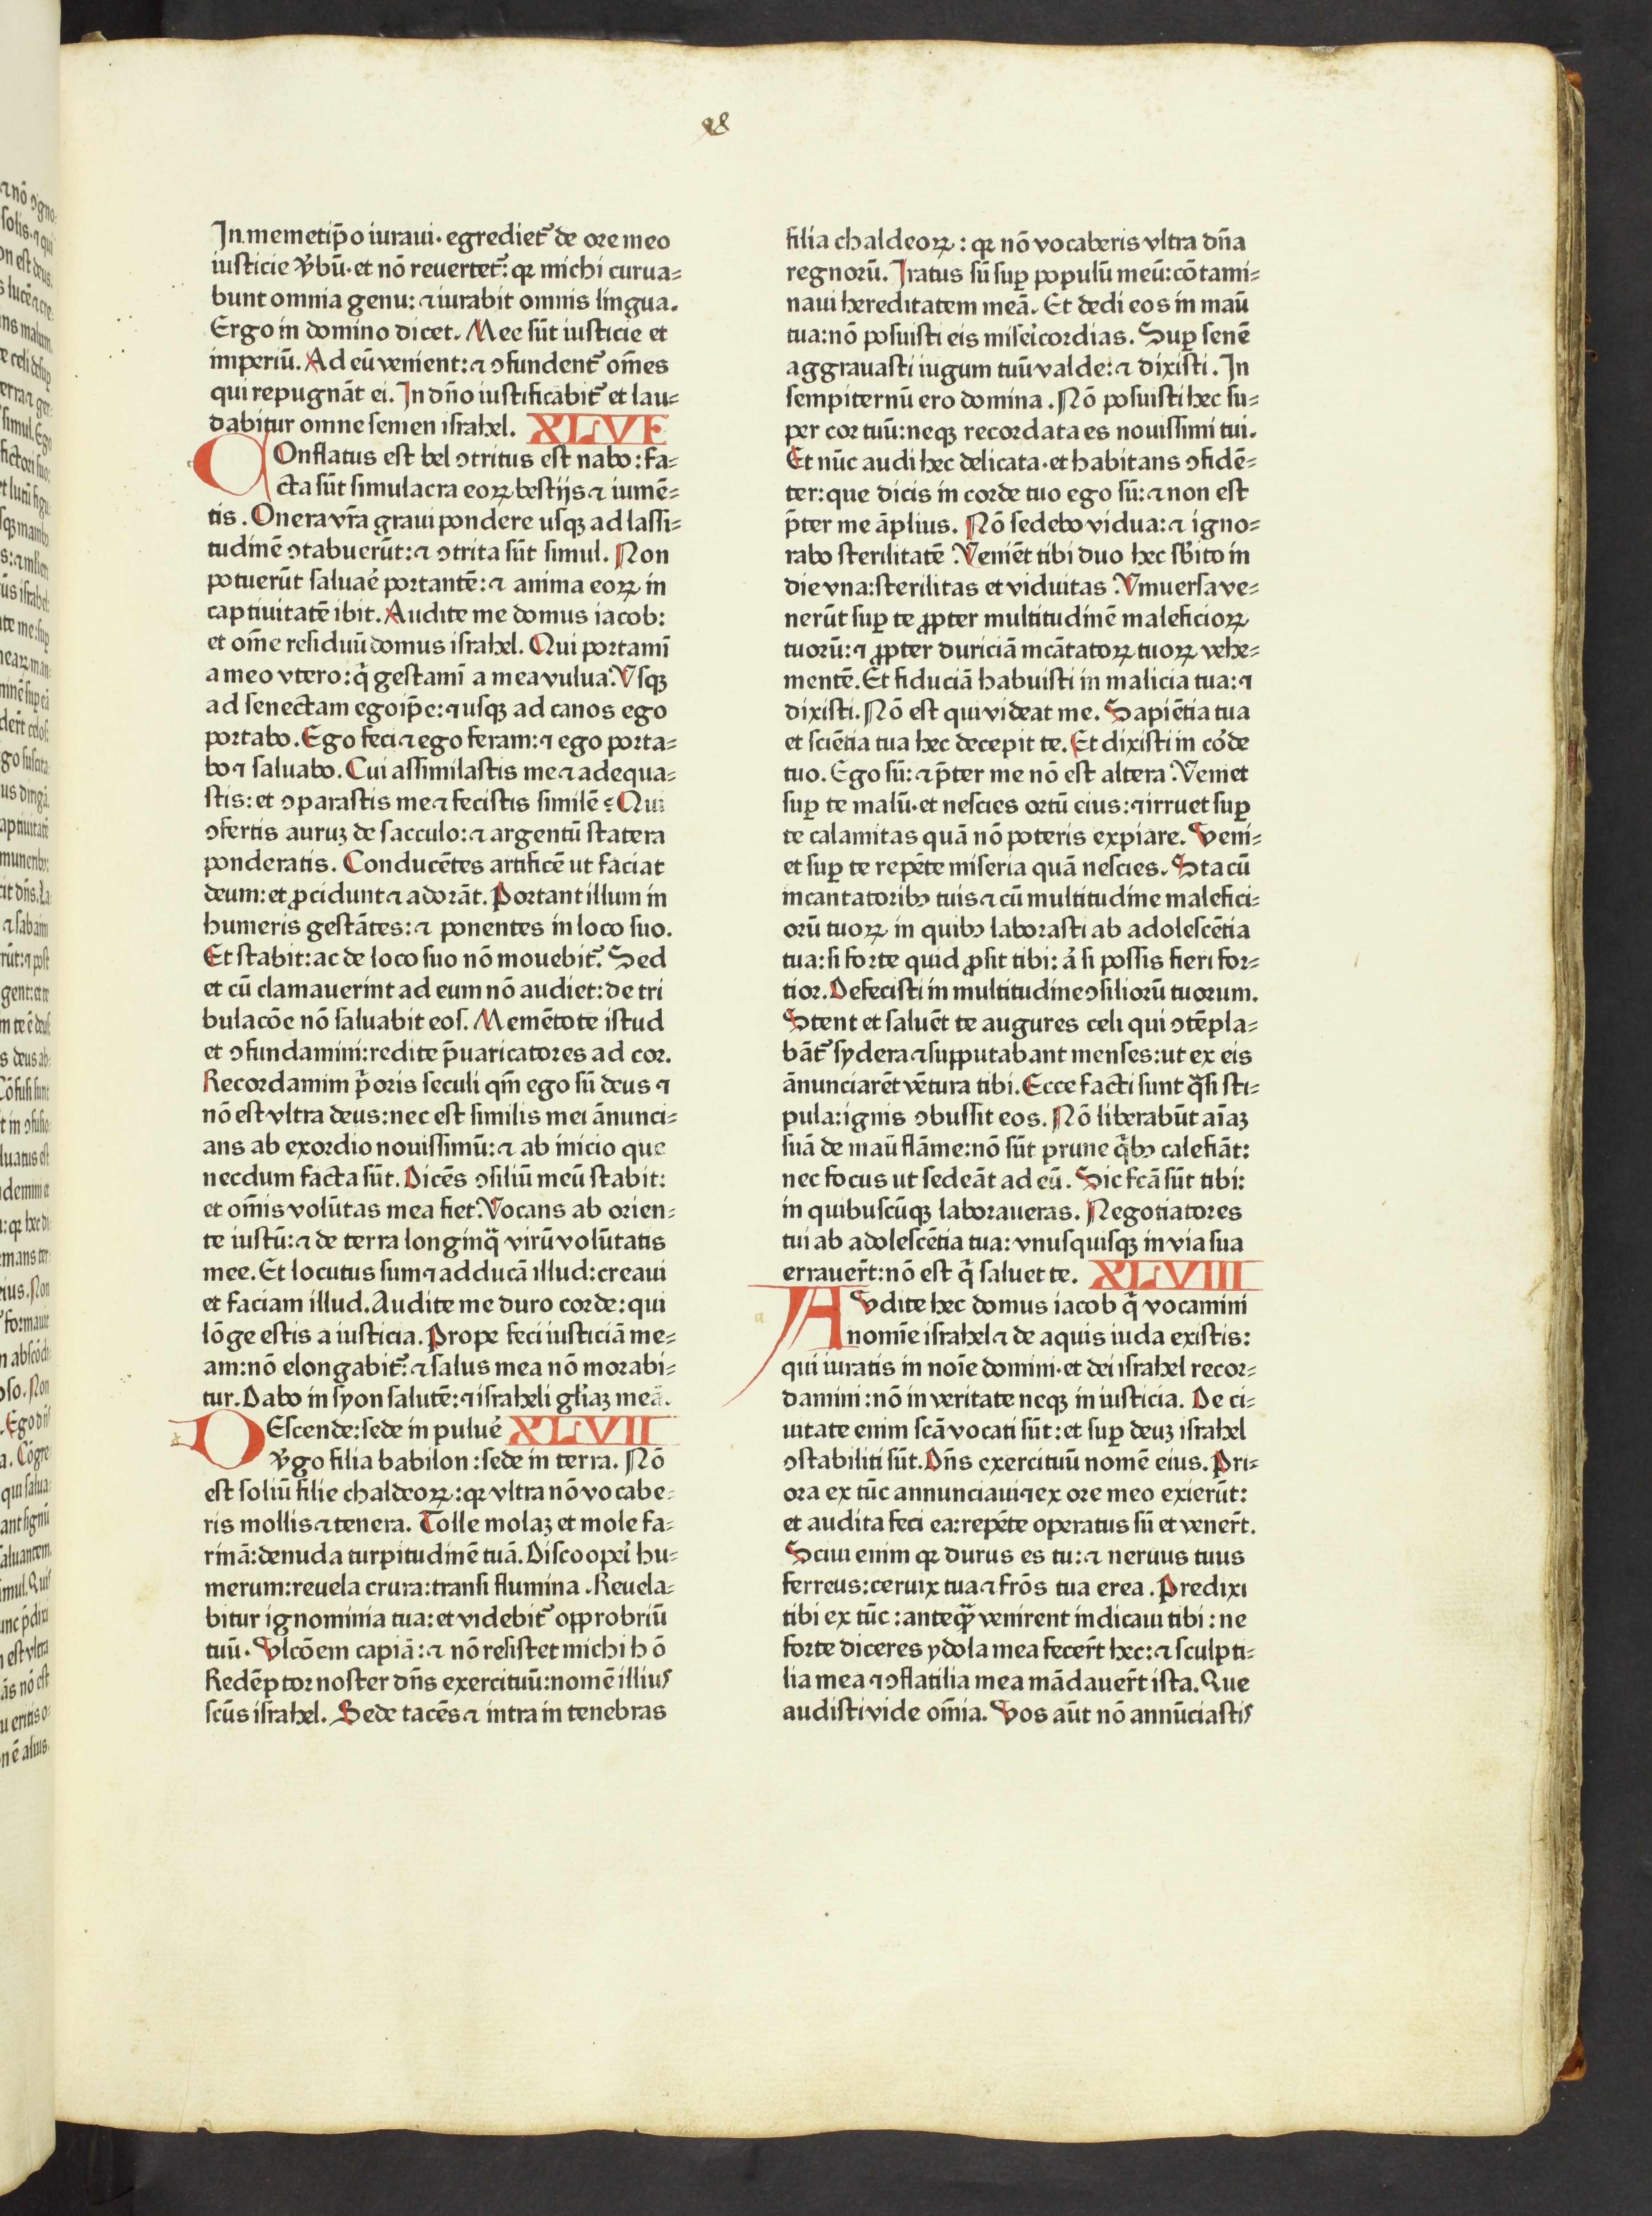 In memetip̄o iuraui· egrediet᷑ de ore meo
iusticie v̾bū· et nō reuertet᷑: qꝛ michi curua⸗
bunt omnia genu: ⁊ iurabit omnis lingua.
Ergo in domino dicet. Mee sūt iusticie et
imperiū. Ad eū venient: ⁊ ↄfundent᷑ om̄es
qui repugnāt ei. In dn̄o iustificabit᷑ et lau⸗
dabitur omne semen israhel. XLVI
COnflatus est bel ↄtritus est nabo: fa⸗
cta sūt simulacra eoꝝ bestijs ⁊ iumē⸗
tis. Onera vr̄a graui pondere usqꝫ ad lassi⸗
tudinē ↄtabuerūt: ⁊ ↄtrita sūt simul. Non
potuerūt saluae᷑ portantē: ⁊ anima eoꝝ in
captiuitatē ibit. Audite me domus iacob:
et om̄e residuū domus israhel. Qui portami᷑
a meo vtero: q̄ gestami᷑ a mea vulua. Vsqꝫ
ad senectam ego ip̄e: ⁊ usqꝫ ad canos ego
portabo. Ego feci ⁊ ego feram: ⁊ ego porta⸗
bo ⁊ saluabo. Cui assimilastis me ⁊ adequa⸗
stis: et ↄparastis me ⁊ fecistis similē? Qui
ↄfertis auruꝫ de sacculo: ⁊ argentū statera
ponderatis. Conducētes artificē ut faciat
deum: et ꝓcidunt ⁊ adorāt. Portant illum in
humeris gestātes: ⁊ ponentes in loco suo.
Et stabit: ac de loco suo nō mouebit᷑. Sed
et cū clamauerint ad eum nō audiet: de tri
bulacōe nō saluabit eos. Memētote istud
et ↄfundamini: redite p̄uaricatores ad cor.
Recordamini p̄oris seculi qm̄ ego sū deus ⁊
nō est vltra deus: nec est similis mei ānunci⸗
ans ab exordio nouissimū: ⁊ ab inicio que
necdum facta sūt. Dicēs ↄsiliū meū stabit:
et om̄is volūtas mea fiet. Vocans ab orien⸗
te iustū: ⁊ de terra longinq̄ virū volūtatis
mee. Et locutus sum ⁊ adducā illud: creaui
et faciam illud. Audite me duro corde: qui
lōge estis a iusticia. Prope feci iusticiā me⸗
am: nō elongabit᷑: ⁊ salus mea nō morabi⸗
tur. Dabo in syon salutē: ⁊ israheli gl̄iaꝫ meā.
DEscende: sede in puluē XLVII
v̾go filia babilon: sede in terra. Nō
est soliū filie chaldeoꝝ: qꝛ vltra nō vocabe⸗
ris mollis ⁊ tenera. Tolle molaꝫ et mole fa⸗
rinā: denuda turpitudinē tuā. Discoopei᷑ hu⸗
merum: reuela crura: transi flumina. Reuela⸗
bitur ignominia tua: et videbit᷑ opꝓbriū
tuū. Vlcōem capiā: ⁊ nō resistet michi hō
Redēptor noster dn̄s exercituū: nomē illius
scūs israhel. Sede tacēs ⁊ intra in tenebras
filia chaldeoꝝ: qꝛ nō vocaberis vltra dn̄a
regnorū. Iratus sū suꝑ populū meū: cōtami⸗
naui hereditatem meā. Et dedi eos in maū
tua: nō posuisti eis misei᷑cordias. Suꝑ senē
aggrauasti iugum tuū valde: ⁊ dixisti. In
sempiternū ero domina. Nō posuisti hec su⸗
per cor tuū: neqꝫ recordata es nouissimi tui.
Et nūc audi hec delicata· et habitans ↄfidē⸗
ter: que dicis in corde tuo ego sū: ⁊ non est
p̄ter me āplius. Nō sedebo vidua: ⁊ igno⸗
rabo sterilitatē. Veniēt tibi duo hec sb̾ito in
die vna: sterilitas et viduitas. Vniuersa ve⸗
nerūt suꝑ te ꝓpter multitudinē maleficioꝝ
tuorū: ⁊ ꝓpter duriciā incātatoꝝ tuoꝝ vehe⸗
mentē. Et fiduciā habuisti in malicia tua: ⁊
dixisti. Nō est qui videat me. Sapiētia tua
et sciētia tua hec decepit te. Et dixisti in co᷑de
tuo. Ego sū: ⁊ p̄ter me nō est altera. Veniet
suꝑ te malū· et nescies ortū eius: ⁊ irruet suꝑ
te calamitas quā nō poteris expiare. Veni⸗
et suꝑ te repēte miseria quā nescies. Sta cū
incantatoribꝰ tuis ⁊ cū multitudine malefici⸗
orū tuoꝝ in quibꝰ laborasti ab adolescētia
tua: si forte quid ꝓsit tibi: a᷑ si possis fieri for⸗
tior. Defecisti in multitudine ↄsiliorū tuorum.
Stent et saluēt te augures celi qui ↄtēpla⸗
bāt᷑ sydera ⁊ supputabant menses: ut ex eis
ānunciarēt vētura tibi. Ecce facti sunt q̄si sti⸗
pula: ignis ↄbussit eos. Nō liberabūt aīaꝫ
suā de maū flāme: nō sūt prune q̄bꝰ calefiāt:
nec focus ut sedeāt ad eū. Sic fcā sūt tibi:
in quibuscūqꝫ laboraueras. Negotiatores
tui ab adolescētia tua: vnusquisqꝫ in via sua
errauer̄t: nō est q̄ saluet te. XLVIII
AVdite hec domus iacob q̄ vocamini
nomīe israhel ⁊ de aquis iuda existis:
qui iuratis in noīe domini· et dei israhel recor⸗
damini: nō in veritate neqꝫ in iusticia. De ci⸗
uitate enim scā vocati sūt: et suꝑ deuꝫ israhel
ↄstabiliti sūt. Dn̄s exercituū nomē eius. Pri⸗
ora ex tūc annunciaui ⁊ ex ore meo exierūt:
et audita feci ea: repēte operatus sū et vener̄t.
Sciui enim qꝛ durus es tu: ⁊ neruus tuus
ferreus: ceruix tua ⁊ frōs tua erea. Predixi
tibi ex tūc: anteqꝫ̄ venirent indicaui tibi: ne
forte diceres ydola mea fecer̄t hec: ⁊ sculpti⸗
lia mea ⁊ ↄflatilia mea mādauer̄t ista. Que
audisti vide om̄ia. Vos aūt nō annūciastis